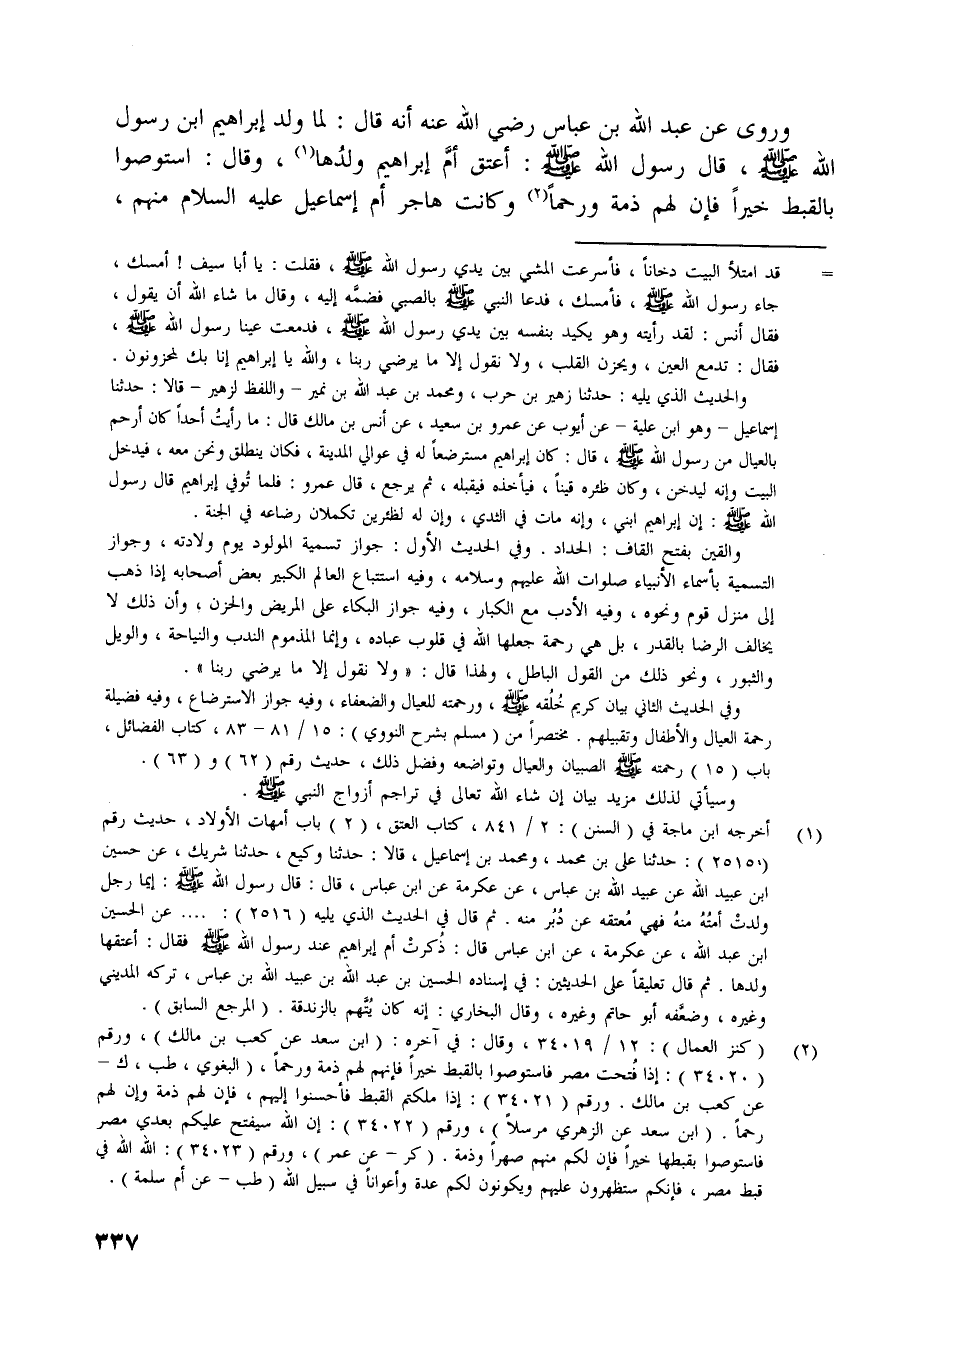 وروى عن عبد الله بن عباس رضي الله عنه أنه قال : لما ولد إبراهيم ابن رسول
الله ﷺ ، قال رسول الله ﷺ : أعتق أمَّ إبراهيم ولدُها(١) ، وقال : استوصوا
بالقبط خيراً فإن لهم ذمة ورحماً(٢) وكانت هاجر أم إسماعيل عليه السلام منهم ،
= قد امتلأ البيت دخاناً ، فأسرعت المشي بين يدي رسول الله ﷺ ، فقلت : يا أبا سيف ! أمسك ،
جاء رسول الله ﷺ ، فأمسك ، فدعا النبي ﷺ بالصبي فضمَّه إليه ، وقال ما شاء الله أن يقول ،
فقال أنس : لقد رأيته وهو يكيد بنفسه بين يدي رسول الله ﷺ ، فدمعت عينا رسول الله ﷺ ،
فقال : تدمع العين ، ويحزن القلب ، ولا نقول إلا ما يرضي ربنا ، والله يا إبراهيم إنا بك لمحزونون .
والحديث الذي يليه : حدثنا زهير بن حرب ، ومحمد بن عبد الله بن نمير – واللفظ لزهير – قالا : حدثنا
إسماعيل – وهو ابن علية – عن أيوب عن عمرو بن سعيد ، عن أنس بن مالك قال : ما رأيتُ أحداً كان أرحم
بالعيال من رسول الله ﷺ ، قال : كان إبراهيم مسترضعاً له في عوالي المدينة ، فكان ينطلق ونحن معه ، فيدخل
البيت وإنه ليدخن ، وكان ظئره قيناً ، فيأخذه فيقبله ، ثم يرجع ، قال عمرو : فلما تُوفي إبراهيم قال رسول
الله ﷺ : إن إبراهيم ابني ، وإنه مات في الثدي ، وإن له لظئرين تكملان رضاعه في الجنة .
والقين بفتح القاف : الحداد . وفي الحديث الأول : جواز تسمية المولود يوم ولادته ، وجواز
التسمية بأسماء الأنبياء صلوات الله عليهم وسلامه ، وفيه استتباع العالم الكبير بعض أصحابه إذا ذهب
إلى منزل قوم ونحوه ، وفيه الأدب مع الكبار ، وفيه جواز البكاء على المريض والحزن ، وأن ذلك لا
يخالف الرضا بالقدر ، بل هي رحمة جعلها الله في قلوب عباده ، وإنما المذموم الندب والنياحة ، والويل
والثبور ، ونحو ذلك من القول الباطل ، ولهذا قال : « ولا نقول إلا ما يرضي ربنا » .
وفي الحديث الثاني بيان كريم خُلُقه ﷺ ، ورحمته للعيال والضعفاء ، وفيه جواز الاسترضاع ، وفيه فضيلة
رحمة العيال والأطفال وتقبيلهم . مختصراً من ( مسلم بشرح النووي ) : ١٥ / ٨١ – ٨٣ ، كتاب الفضائل ،
باب ( ١٥ ) رحمته ﷺ الصبيان والعيال وتواضعه وفضل ذلك ، حديث رقم ( ٦٢ ) و ( ٦٣ ) .
وسيأتي لذلك مزيد بيان إن شاء الله تعالى في تراجم أزواج النبي ﷺ .
(١) أخرجه ابن ماجة في ( السنن ) : ٢ / ٨٤١ ، كتاب العتق ، ( ٢ ) باب أمهات الأولاد ، حديث رقم
( ٢٥١٥ ) : حدثنا علي بن محمد ، ومحمد بن إسماعيل ، قالا : حدثنا وكيع ، حدثنا شريك ، عن حسين
ابن عبيد الله عن عبيد الله بن عباس ، عن عكرمة عن ابن عباس ، قال : قال رسول الله ﷺ : إيما رجل
ولدتْ أمتُهُ منهُ فهي مُعتقه عن دُبُر منه . ثم قال في الحديث الذي يليه ( ٢٥١٦ ) : .... عن الحسين
ابن عبد الله ، عن عكرمة ، عن ابن عباس قال : ذُكرتْ أم إبراهيم عند رسول الله ﷺ فقال : أعتقها
ولدها . ثم قال تعليقاً على الحديثين : في إسناده الحسين بن عبد الله بن عبيد الله بن عباس ، تركه المديني
وغيره ، وضعَّفه أبو حاتم وغيره ، وقال البخاري : إنه كان يُتَّهم بالزندقة . ( المرجع السابق ) .
(٢) ( كنز العمال ) : ١٢ / ٣٤٠١٩ ، وقال : في آخره : ( ابن سعد عن كعب بن مالك ) ، ورقم
( ٣٤٠٢٠ ) : إذا فُتحت مصر فاستوصوا بالقبط خيراً فإنهم لهم ذمة ورحماً ، ( البغوي ، طب ، ك –
عن كعب بن مالك . ورقم ( ٣٤٠٢١ ) : إذا ملكتم القبط فأحسنوا إليهم ، فإن لهم ذمة وإن لهم
رحماً . ( ابن سعد عن الزهري مرسلاً ) ، ورقم ( ٣٤٠٢٢ ) : إن الله سيفتح عليكم بعدي مصر
فاستوصوا بقبطها خيراً فإن لكم منهم صهراً وذمة . ( كر – عن عمر ) ، ورقم ( ٣٤٠٢٣ ) : الله الله في
قبط مصر ، فإنكم ستظهرون عليهم ويكونون لكم عدة وأعواناً في سبيل الله ( طب – عن أم سلمة ) .
٣٣٧